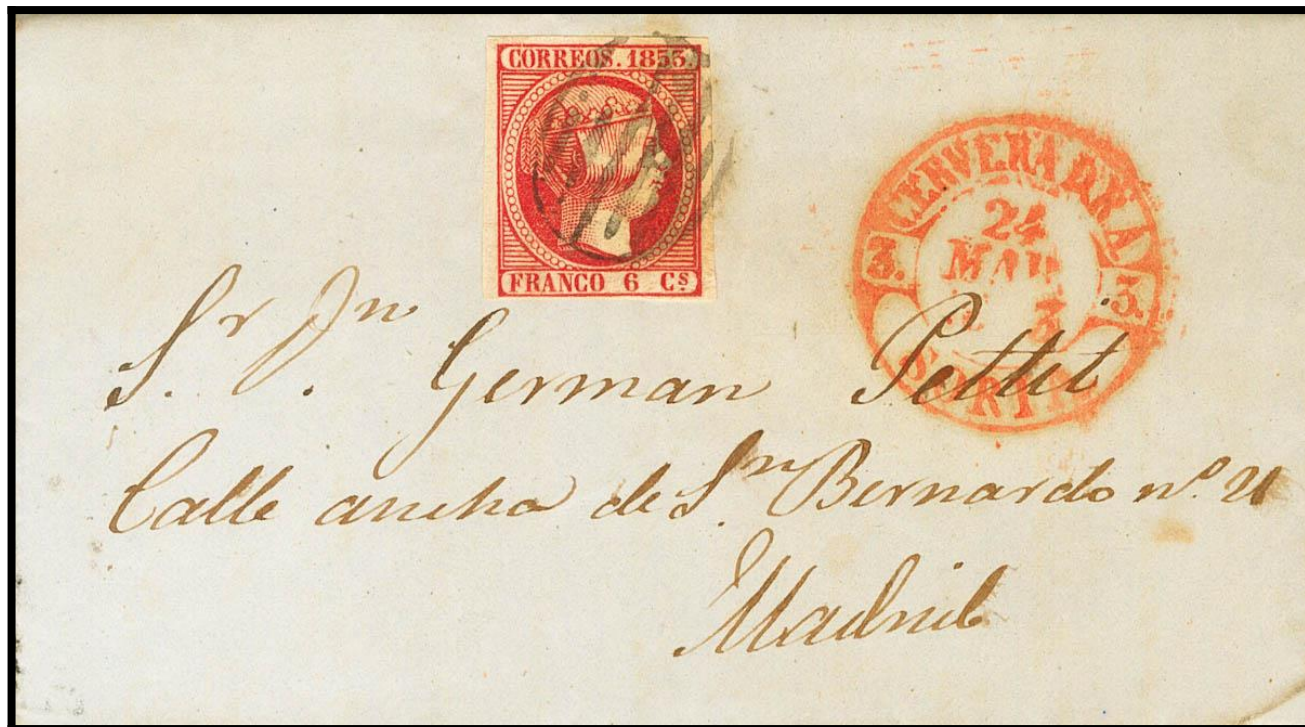 CORREOS. 1853.
FRANCO 6 Cs
3. CERVERA 3.
24
MAR
3
SORIA
Sr Dn
S. D. German Pettit
Calle ancha de Sn. Bernardo nº. 21
Madrid